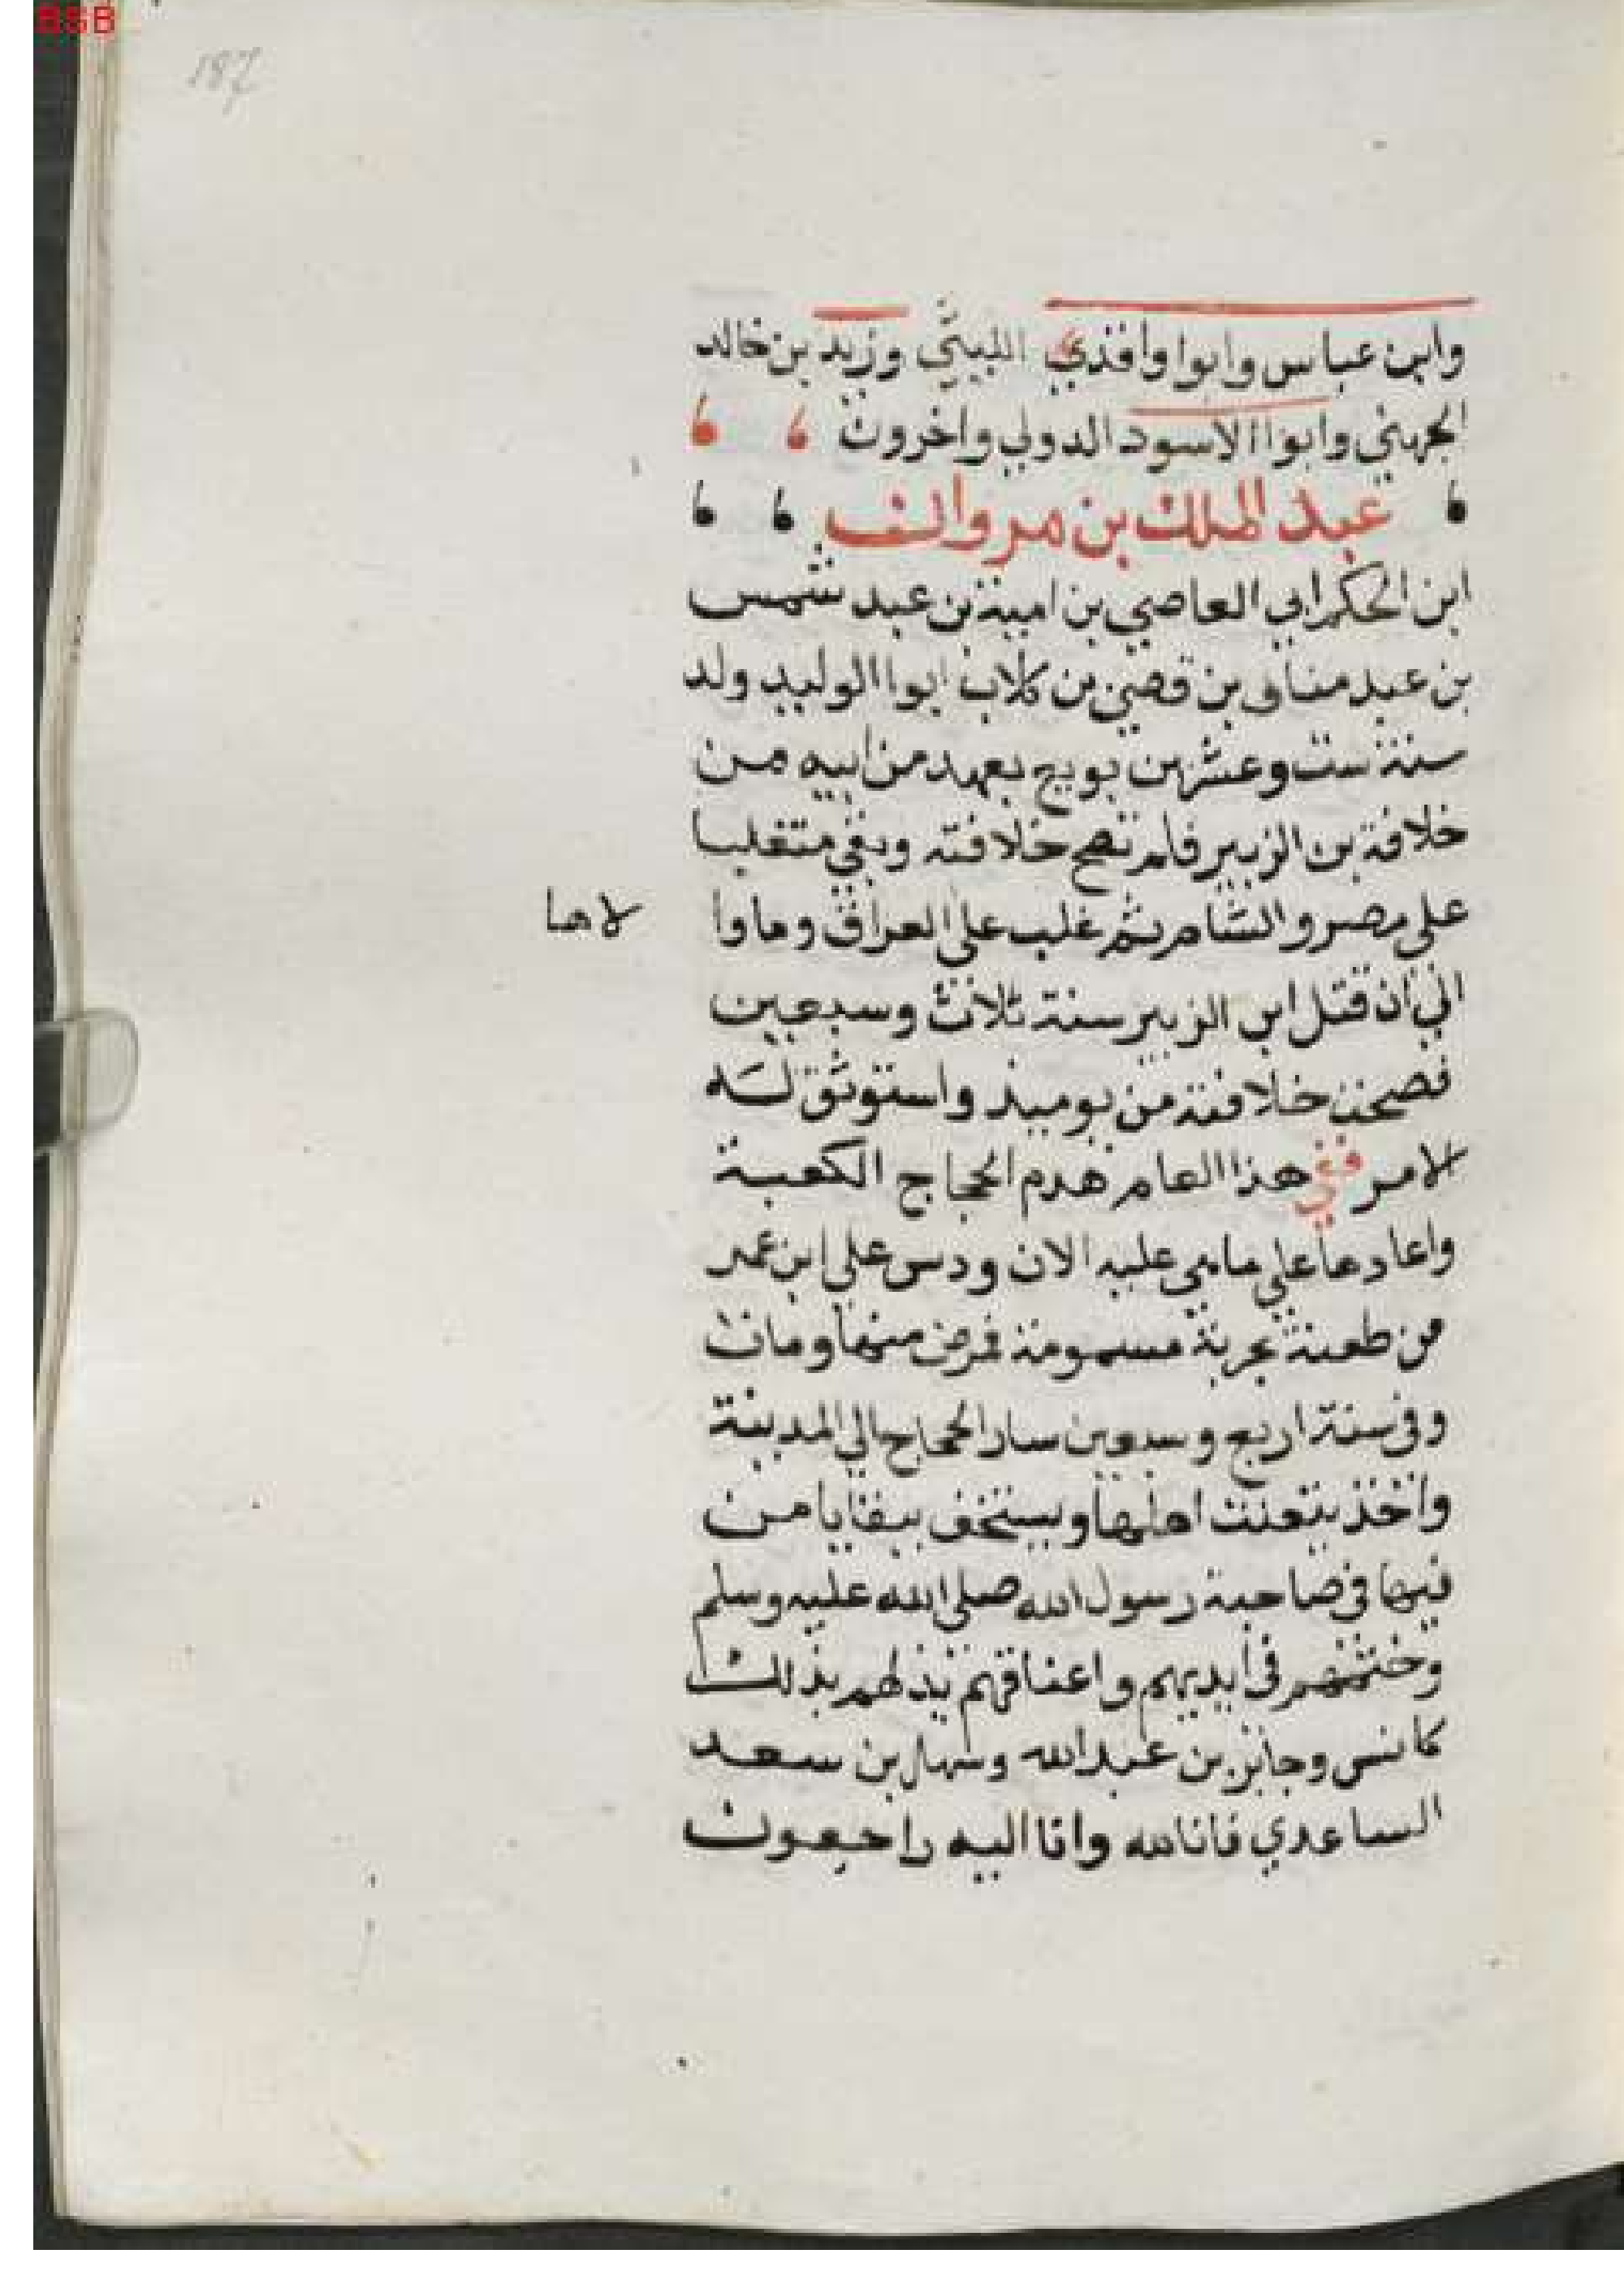 BSB
187
وابن عباس وابوا واقدي الليثي وزيد بن خالد
الجهني وابوا الاسود الدولي واخرون
عبد الملك بن مروان
ابن الحكم ابي العاصي بن امية بن عبد شمس
بن عبد مناف بن قصي بن كلاب ابوا الوليد ولد
سنة ست وعشرين بويع بعهد من ابيه من
خلافة بن الزبير فلم تصح خلافته وبقي متغلبا
على مصر والشام ثم غلب على العراق وما وا لاها
الي ان قتل ابن الزبير سنة ثلاث وسبعين
فصحت خلافته من يوميذ واستوثق له
الامر ففي هذا العام هدم الحجاج الكعبة
واعادها علي ما هي عليه الان ودس على ابن عمر
من طعنة بحربة مسمومة فمرض منها ومات
وفي سنة اربع وسبعين سار الحجاج الي المدينة
واخذ يتعنت اهلها ويستخف ببقايا من
فيها في صاحبة رسول الله صلى الله عليه وسلم
وختمهم في ايديهم واعناقهم يذلهم بذلك
كانس وجابر بن عبد الله وسهل بن سعد
الساعدي فانا لله وانا اليه راجعون